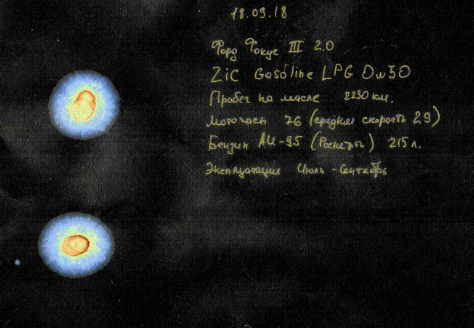 18.09.18
Форд Фокус III 2.0
ZiC Gasoline LPG 0w30
Пробег на масле 2230 км.
Моточасы 76 (средняя скорость 29)
Бензин АИ-95 (Роснефть) 215 л.
Эксплуатация Июль-Сентябрь